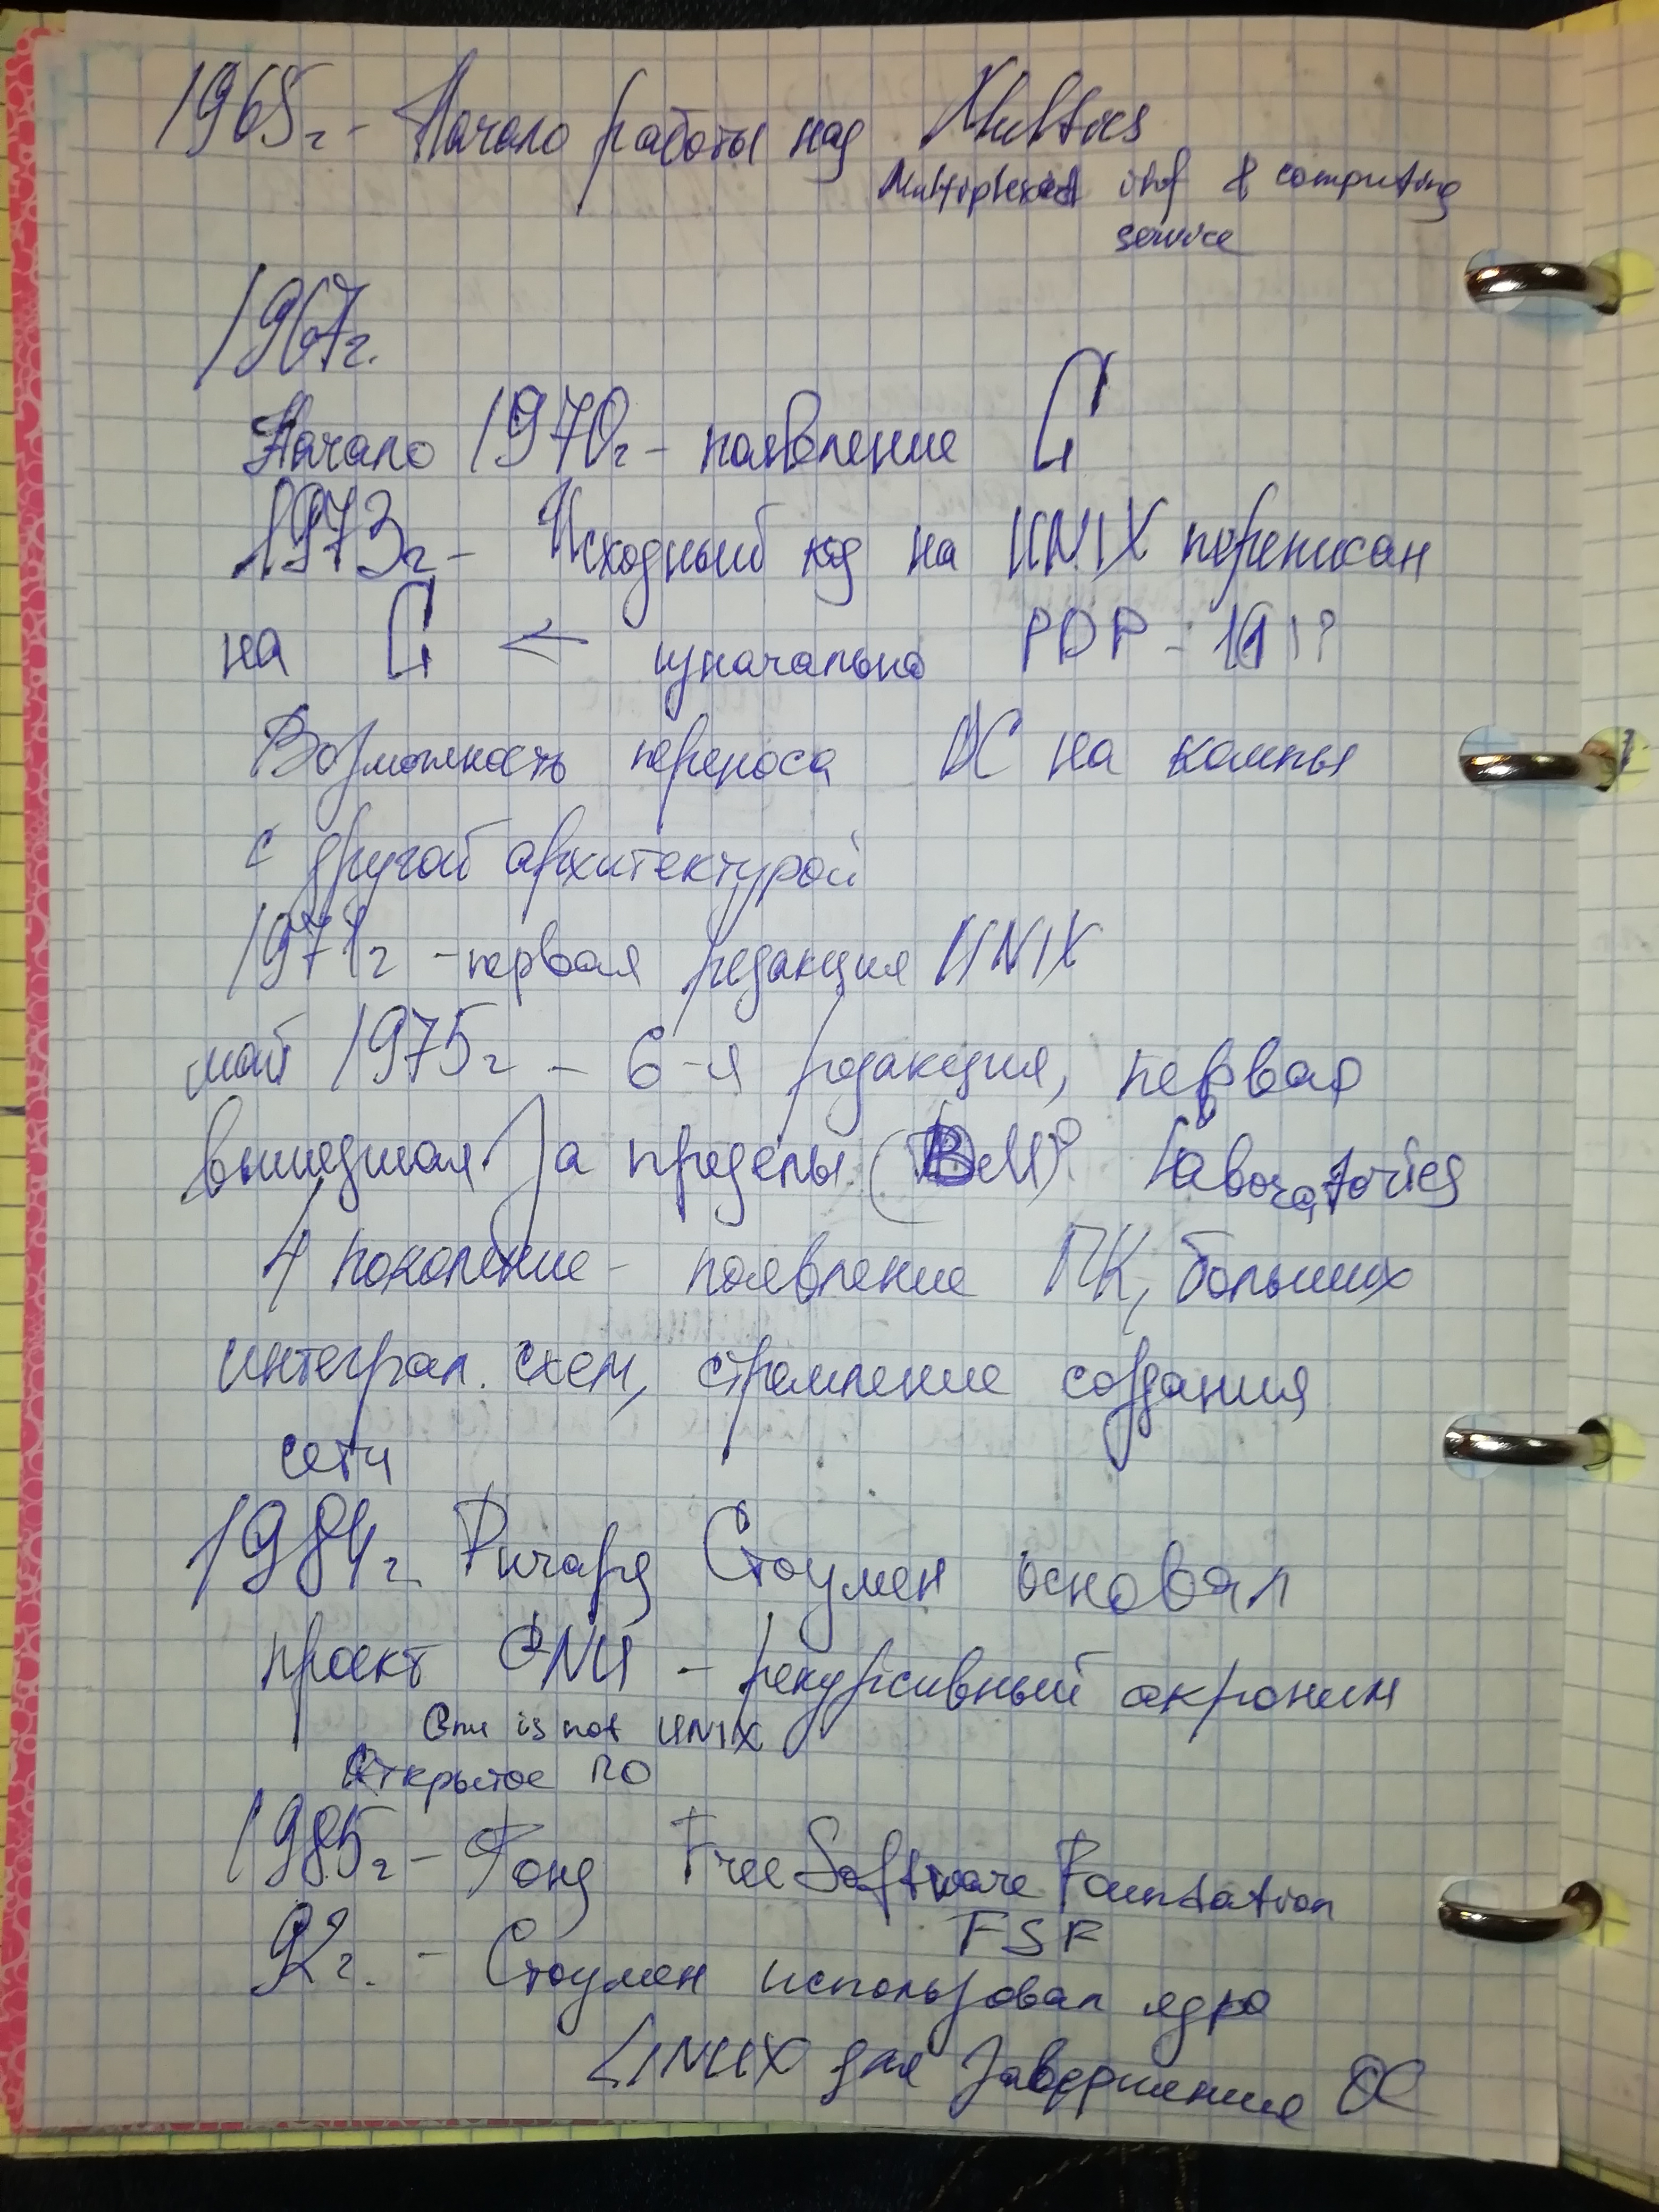 1965г - Начало работы над Multics
Multiplexed inf & computing
service
1967г.
Начало 1970г - появление C
1973г - Исходный код на UNIX переписан
на C ← изначально PDP - 11
Возможность переноса ОС на компы
с другой архитектурой
1971г - первая редакция UNIX
май 1975г - 6-я редакция, первая
вышедшая за пределы (Bell)? Laboratories
4 поколение - появление ПК, больших
интеграл. схем, стремление создания
сети
1984г. Ричард Стоумен основал
проект GNU - рекурсивный акроним
Gnu is not UNIX
Открытое ПО
1985г - Фонд Free Software Foundation
FSF
г. - Стоумен использовал ядро
LINUX для завершения ОС